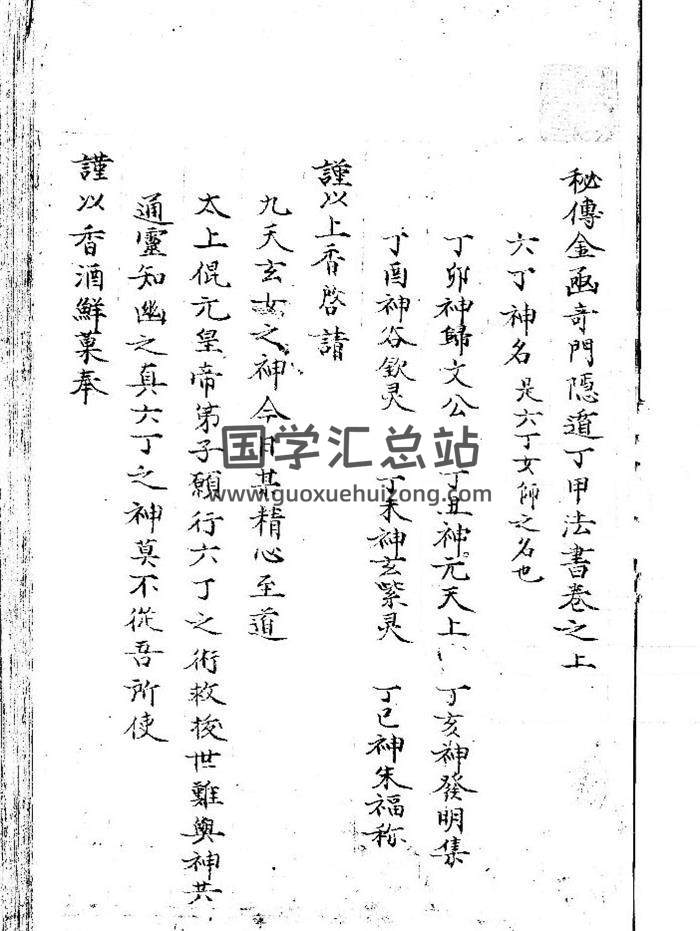 秘傳金函奇門隱遁丁甲法書卷之上
六丁神名 是六丁女師之名也
丁卯神歸文公 丁丑神元天上 丁亥神發明集
丁酉神谷欽灵 丁未神玄紫灵 丁巳神朱福称
謹以上香啓請
九天玄女之神今月某精心至道
太上混元皇帝弟子願行六丁之術救拔世難與神共
通靈知幽之真六丁之神莫不從吾所使
謹以香酒鮮菓奉
国学汇总站
www.guoxuehuizong.com